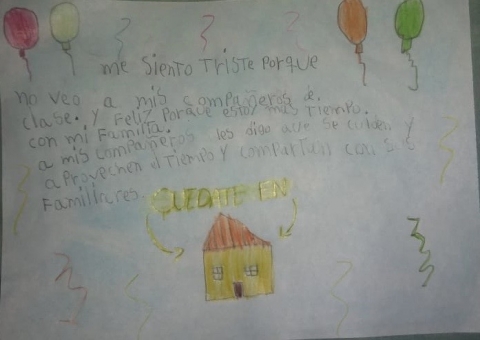 me siento Triste Porque
no veo a mis compañeros de.
clase. y Feliz Porque estoy mas Tiempo.
con mi Familia.
a mis compañeros les digo que se cuiden y
aProvechen el Tiempo y compartan con sus
Familiares.
CUIDATE EN